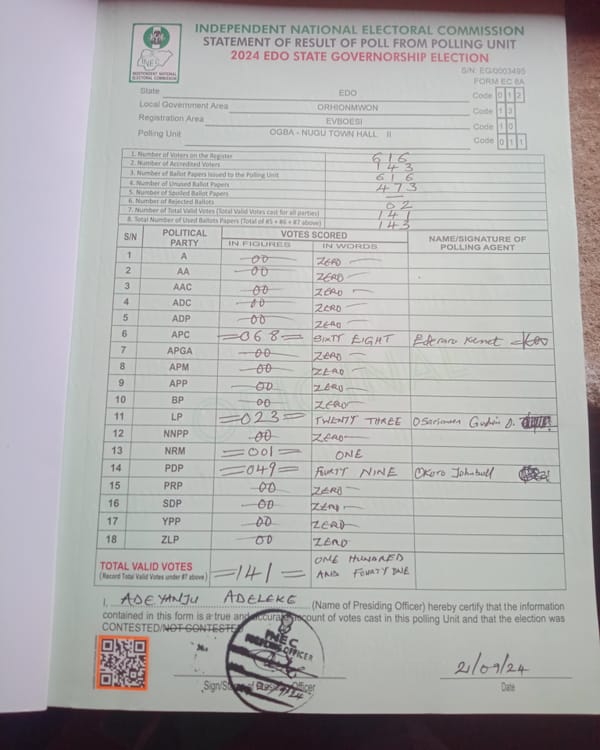 INDEPENDENT NATIONAL ELECTORAL COMMISSION
STATEMENT OF RESULT OF POLL FROM POLLING UNIT
2024 EDO STATE GOVERNORSHIP ELECTION
INEC
INDEPENDENT NATIONAL ELECTORAL COMMISSION
S/N: EG/0003495
FORM EC 8A
State EDO Code 0 1 2
Local Government Area ORHIONMWON Code 1 3
Registration Area EVBOESI Code 1 0
Polling Unit OGBA - NUGU TOWN HALL II Code 0 1 1
1. Number of Voters on the Register 616
2. Number of Accredited Voters 143
3. Number of Ballot Papers Issued to the Polling Unit 616
4. Number of Unused Ballot Papers 473
5. Number of Spoiled Ballot Papers —
6. Number of Rejected Ballots 02
7. Number of Total Valid Votes (Total Valid Votes cast for all parties) 141
8. Total Number of Used Ballots Papers (Total of #5 + #6 + #7 above) 143
S/N POLITICAL PARTY VOTES SCORED NAME/SIGNATURE OF POLLING AGENT
IN FIGURES IN WORDS
1 A 00 ZERO
2 AA 00 ZERO
3 AAC 00 ZERO
4 ADC 00 ZERO
5 ADP 00 ZERO
6 APC =068= SIXTY EIGHT
7 APGA 00 ZERO
8 APM 00 ZERO
9 APP 00 ZERO
10 BP 00 ZERO
11 LP =023= TWENTY THREE
12 NNPP 00 ZERO
13 NRM =001= ONE
14 PDP =049= FOURTY NINE Okoro Johnbull
15 PRP 00 ZERO
16 SDP 00 ZERO
17 YPP 00 ZERO
18 ZLP 00 ZERO
TOTAL VALID VOTES =141= ONE HUNDRED
(Record Total Valid Votes under #7 above) AND FOURTY ONE
I, ADEYANJU ADELEKE (Name of Presiding Officer) hereby certify that the information
contained in this form is a true and accurate account of votes cast in this polling Unit and that the election was
CONTESTED/NOT CONTESTED
INEC
PRESIDING OFFICER
21/09/24
Sign/Stamp of Presiding Officer
Date